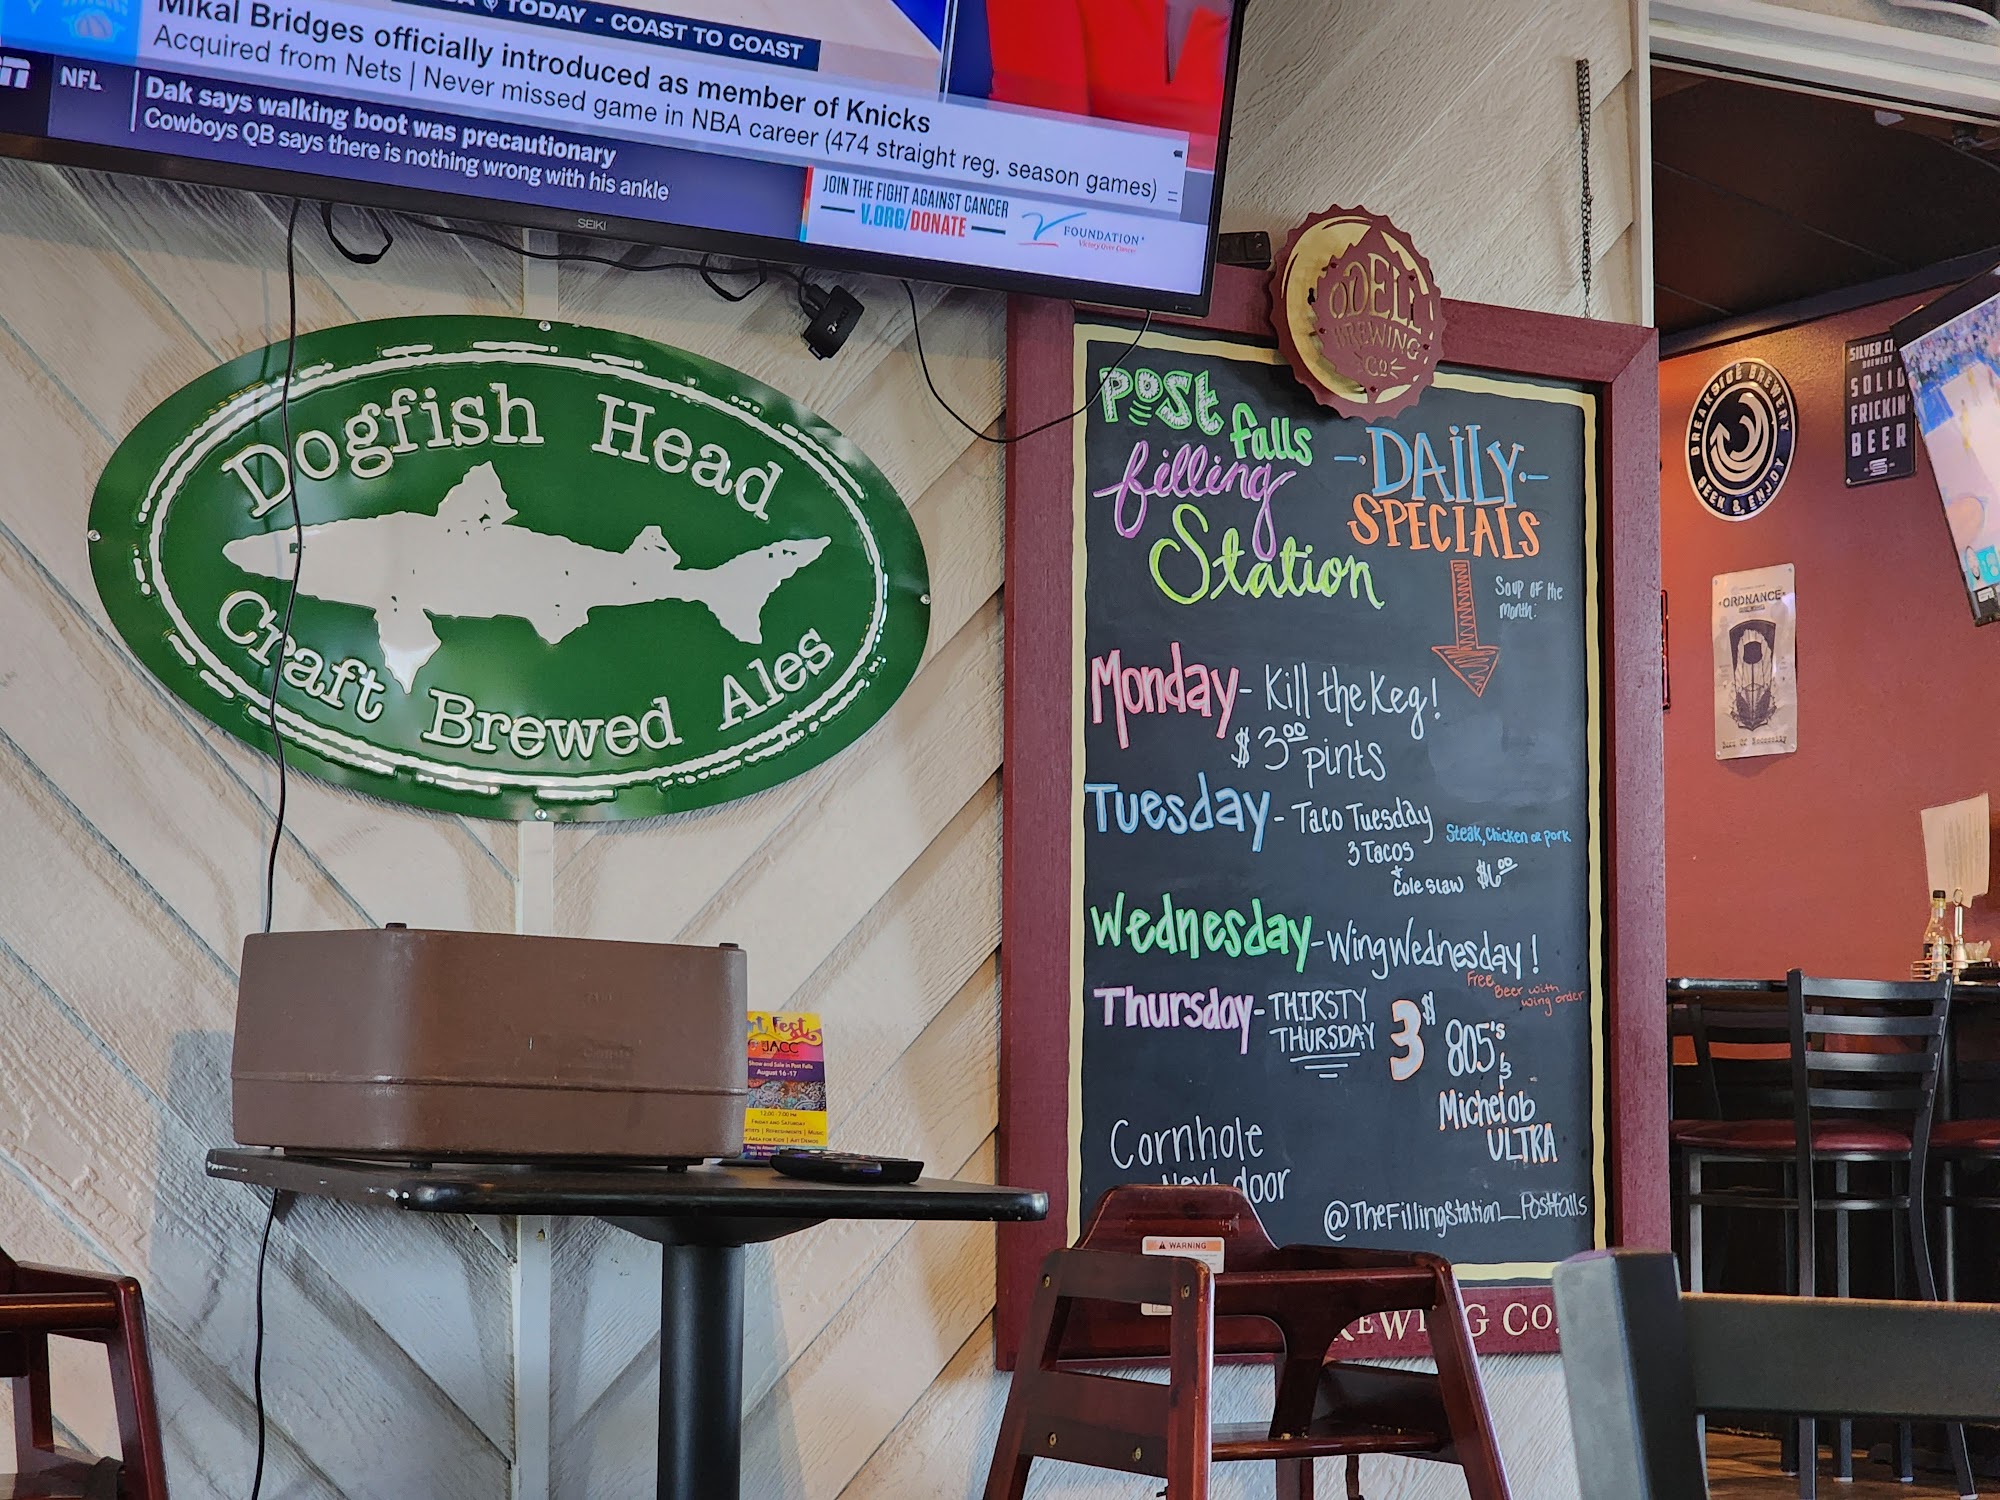 TODAY - COAST TO COAST
Mikal Bridges officially introduced as member of Knicks
Acquired from Nets | Never missed game in NBA career (474 straight reg. season games)
NFL
Dak says walking boot was precautionary
Cowboys QB says there is nothing wrong with his ankle
JOIN THE FIGHT AGAINST CANCER
V.ORG/DONATE
V FOUNDATION
Victory Over Cancer
SEIKI
Dogfish Head
Craft Brewed Ales
ODELL
BREWING
CO
Post
falls
filling
Station
- DAILY -
SPECIALS
Soup of the
month:
Monday - Kill the Keg!
$3.00 pints
Tuesday - Taco Tuesday
Steak, Chicken or Pork
3 Tacos
&
Cole slaw $6.00
Wednesday - Wing Wednesday!
Free
Beer with
wing order
Thursday - THIRSTY
THURSDAY
3$
805's
&
Michelob
ULTRA
Cornhole
Next door
@TheFillingStation_Postfalls
BREWING CO.
WARNING
Fest
JACC
Show and Sale in Post Falls
August 16-17
12:00 - 7:00 PM
FRIDAY AND SATURDAY
| REFRESHMENTS | MUSIC
AREA FOR KIDS | ART DEMOS
BREAKSIDE BREWERY
GEEK & ENJOY
SILVER
BREWERY
SOLID
FRICKIN'
BEER
ORDNANCE